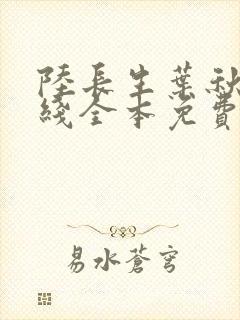 陸長生葉秋
綫全本免費
易水蒼穹